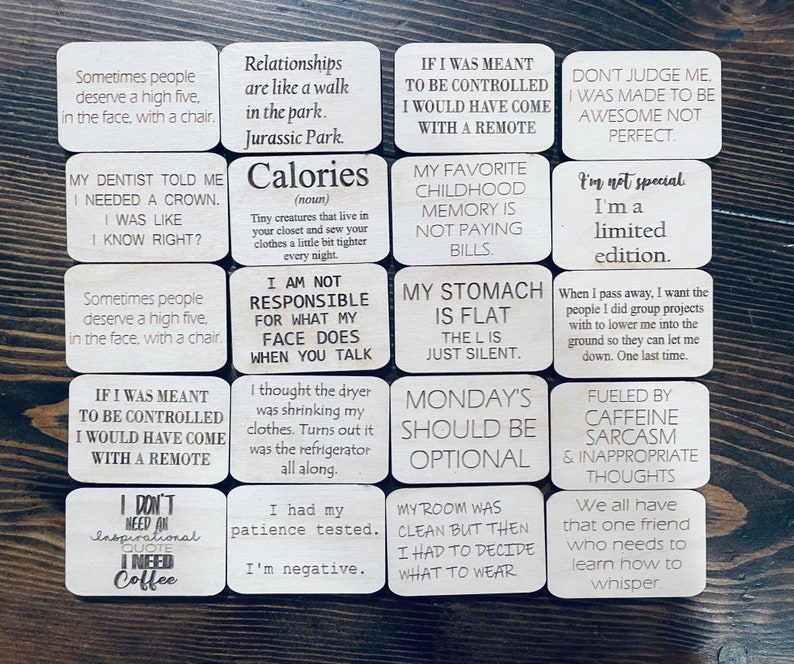 Sometimes people
deserve a high five,
in the face, with a chair.
Relationships
are like a walk
in the park.
Jurassic Park.
IF I WAS MEANT
TO BE CONTROLLED
I WOULD HAVE COME
WITH A REMOTE
DON'T JUDGE ME,
I WAS MADE TO BE
AWESOME NOT
PERFECT.
MY DENTIST TOLD ME
I NEEDED A CROWN.
I WAS LIKE
I KNOW RIGHT?
Calories
(noun)
Tiny creatures that live in
your closet and sew your
clothes a little bit tighter
every night.
MY FAVORITE
CHILDHOOD
MEMORY IS
NOT PAYING
BILLS.
I'm not special.
I'm a
limited
edition.
Sometimes people
deserve a high five,
in the face, with a chair.
I AM NOT
RESPONSIBLE
FOR WHAT MY
FACE DOES
WHEN YOU TALK
MY STOMACH
IS FLAT
THE L IS
JUST SILENT.
When I pass away, I want the
people I did group projects
with to lower me into the
ground so they can let me
down. One last time.
IF I WAS MEANT
TO BE CONTROLLED
I WOULD HAVE COME
WITH A REMOTE
I thought the dryer
was shrinking my
clothes. Turns out it
was the refrigerator
all along.
MONDAY'S
SHOULD BE
OPTIONAL
FUELED BY
CAFFEINE
SARCASM
& INAPPROPRIATE
THOUGHTS
I DON'T
NEED AN
Inspirational
QUOTE
I NEED
Coffee
I had my
patience tested.
I'm negative.
MY ROOM WAS
CLEAN BUT THEN
I HAD TO DECIDE
WHAT TO WEAR.
We all have
that one friend
who needs to
learn how to
whisper.